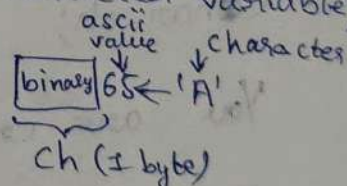 variable
ascii
value character
binary 65 ← 'A'.
Ch (1 byte)